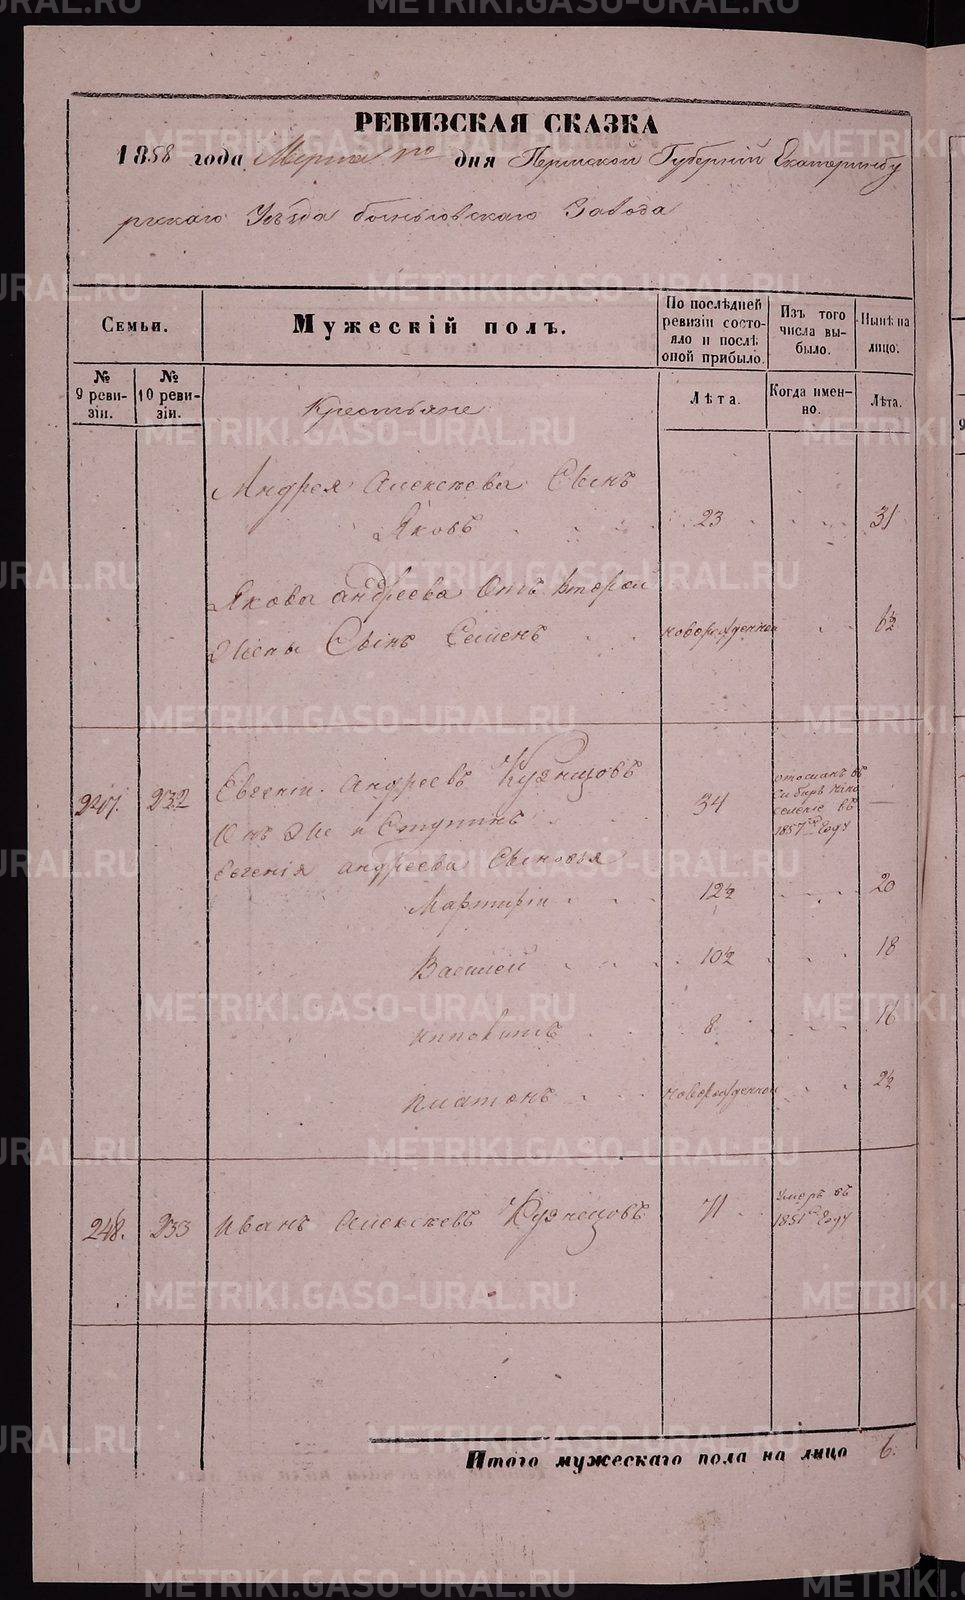 РЕВИЗСКАЯ СКАЗКА
1858 года Марта дня Пермской Губерніи Екатеринбу
ргскаго Уѣзда Заводa
Семьи.
Мужескій полъ.
По послѣдней ревизіи состояло и послѣ оной прибыло.
Изъ того числа выбыло.
Нынѣ на лицо.
№ 9 ревизіи.
№ 10 ревизіи.
Крестьяне
Лѣта.
Когда именно.
Лѣта.
Андрея Алексѣева Сынъ
Яковъ 23 31
Якова Андреева Отъ второй
Жены Сынъ Семенъ новорожденной 6½
247. 232 Евгеніи Андреевъ Кузнецовъ 34 отосланъ въ Сибирь на поселеніе въ 1857 году —
Онъ Же и Ступинъ
Евгенія Андреева Сыновья
Мартирiи 12½ 20
Василей 10½ 18
Ипполитъ 8 16
Платонъ новорожденной 2½
248. 233 Иванъ Алексѣевъ Кузнецовъ 71 Умеръ въ 1851 году
Итого мужескаго пола на лицо 6.
METRIKI.GASO-URAL.RU